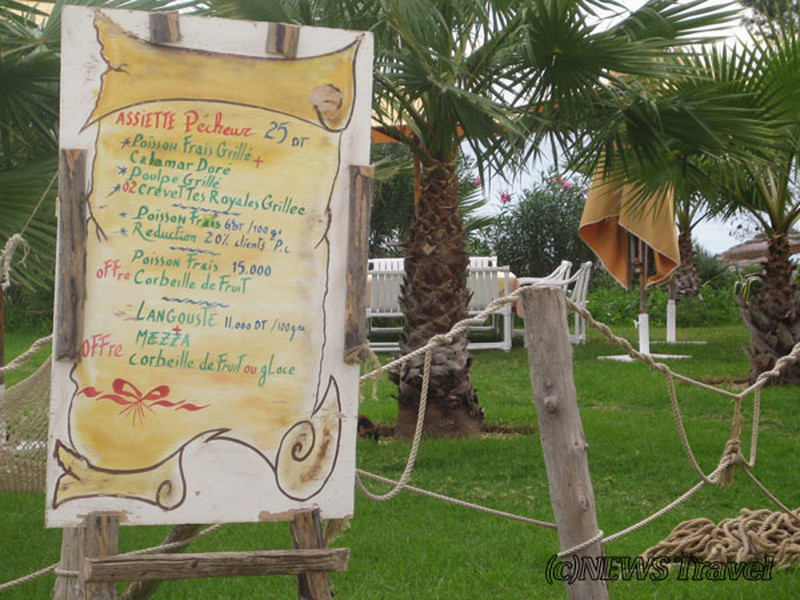 ASSIETTE Pêcheur 25 DT
*Poisson Frais Grillé +
Calamar Doré
*Poulpe Grillé
*02 Crevettes Royales Grillee
*Poisson Frais 6DT/100gr
*Reduction 20% clients P.c
Poisson Frais 15.000
offre Corbeille de Fruit
LANGOUSTE 11.000 DT/100grs
+
MEZZA
OFFRE
corbeille de Fruit ou glace
(c)NEWS Travel